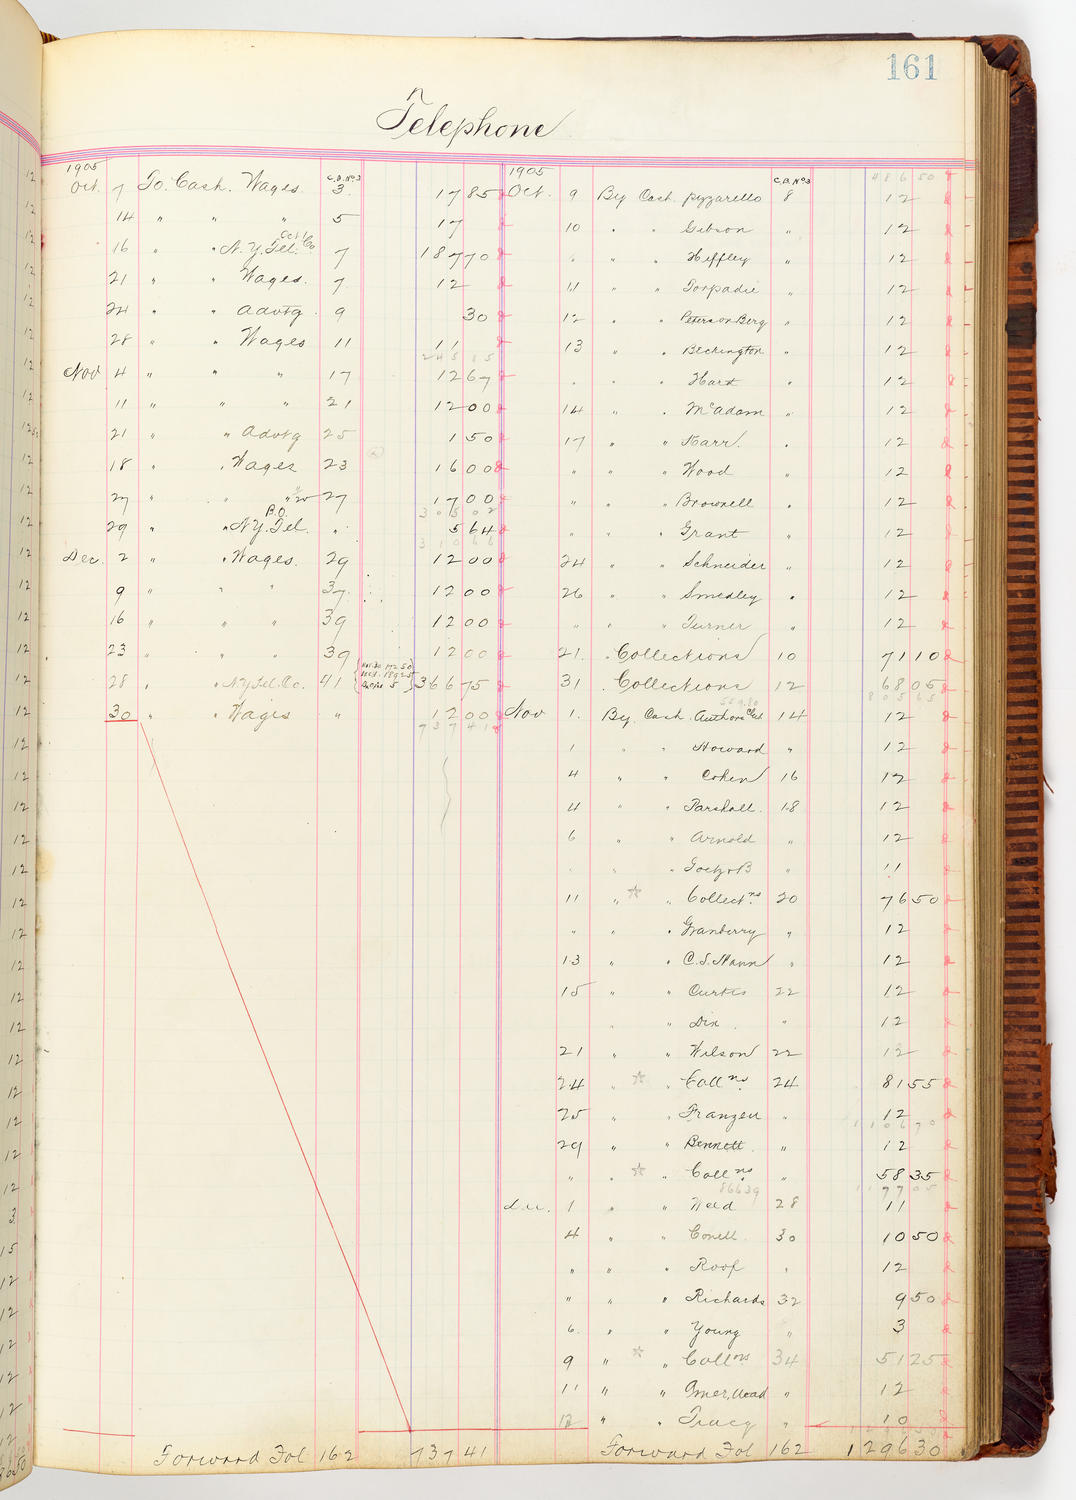 161
Telephone
1905
C.B. No 3
Oct. 7 To Cash. Wages 3. 17 85
14 " " " 5 17
16 " " N.Y. Tel. Co. Oct 1 7 187 70
21 " " Wages. 7 12
24 " " Advtg. 9 30
28 " " Wages 11 11
245 85
Nov 4 " " " 17 12 67
11 " " " 21 12 00
21 " " Advtg 25 1 50
18 " " Wages 23 16 00
27 " " " 27 17 00
305 02
29 " " N.Y. Tel. B.O. " 5 64
310 66
Dec. 2 " " Wages. 29 12 00
9 " " " 37. 12 00
16 " " " 39 12 00
23 " " " 39 12 00
28 " " N.Y. Tel. Co. 41 366 75
30 " " Wages " 12 00
737 41
Forward Fol 162 737 41
1905
C.B. No 3
486 50
Oct. 9 By Cash. Pizzarello 8 12
10 " " Gibson " 12
" " " Heffley " 12
11 " " Torpadie " 12
12 " " Peterson Berg " 12
13 " " Beckington " 12
" " " Hard " 12
14 " " McAdam " 12
17 " " Karr. " 12
" " " Wood " 12
" " " Brownell " 12
" " " Grant " 12
24 " " Schneider " 12
26 " " Smedley " 12
" " " Turner " 12
21. " Collections 10 71 10
31 " Collections 12 68 05
805 65
Nov 1. By Cash. Authors Club 14 12
1 " " Howard " 12
4 " " Cohen 16 12
4 " " Parshall. 18 12
6 " " Arnold " 12
" " " " 11
11 " ☆ " Collect ns. 20 76 50
" " " Granberry " 12
13 " " C.S. Mann " 12
15 " " Curtis 22 12
" " Dix. " 12
21 " " Wilson 22 12
24 " ☆ " Coll ns. 24 81 55
25 " " Franzen " 12
1106 70
29 " " Bennett. " 12
" " ☆ " Coll ns. " 58 35
866 39 1177 05
Dec. 1 " " Weed 28 11
4 " " Conell 30 10 50
" " " Roof " 12
" " " Richards 32 9 50
6. " " Young " 3
9 " ☆ " Coll ns 34 51 25
11 " " " 12
12 " " Tracy " 10
Forward Fol 162 1296 30